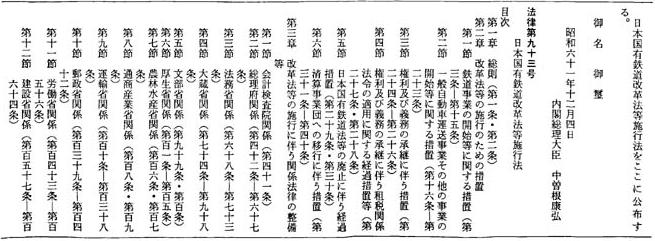 日本国有鉄道改革法等施行法をここに公布す
る。
御名御璽
昭和六十一年十二月四日
内閣総理大臣 中曽根康弘
法律第九十三号
日本国有鉄道改革法等施行法
目次
第一章 総則(第一条・第二条)
第二章 改革法等の施行のための措置
第一節 鉄道事業の開始等に関する措置(第
三条―第十五条)
第二節 一般自動車運送事業その他の事業の
開始等に関する措置(第十六条―第
二十三条)
第三節 権利及び義務の承継に伴う措置(第
二十四条―第二十六条)
第四節 権利及び義務の承継に伴う租税関係
法令の適用に関する経過措置等(第
二十七条・第二十八条)
第五節 日本国有鉄道法等の廃止に伴う経過
措置(第二十九条・第三十条)
第六節 清算事業団への移行に伴う措置(第
三十一条―第四十条)
第三章 改革法等の施行に伴う関係法律の整備
等
第一節 会計検査院関係(第四十一条)
第二節 総理府関係(第四十二条―第六十七
条)
第三節 法務省関係(第六十八条―第七十三
条)
第四節 大蔵省関係(第七十四条―第九十八
条)
第五節 文部省関係(第九十九条・第百条)
第六節 厚生省関係(第百一条―第百五条)
第七節 農林水産省関係(第百六条・第百七
条)
第八節 通商産業省関係(第百八条・第百九
条)
第九節 運輸省関係(第百十条―第百三十八
条)
第十節 郵政省関係(第百三十九条―第百四
十二条)
第十一節 労働省関係(第百四十三条―第百
五十六条)
第十二節 建設省関係(第百五十七条―第百
六十四条)